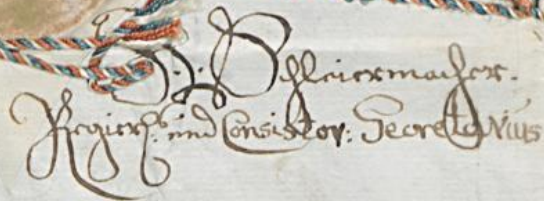 Schleiermacher.
Regier: und Consistor: Secretarius